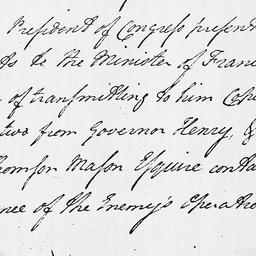 President of Congress present
ts to the Minister of Franc
of transmitting to him Copie
two from Governor Henry, &
homson Mason Esquire conta
nce of the Enemy's Operatio